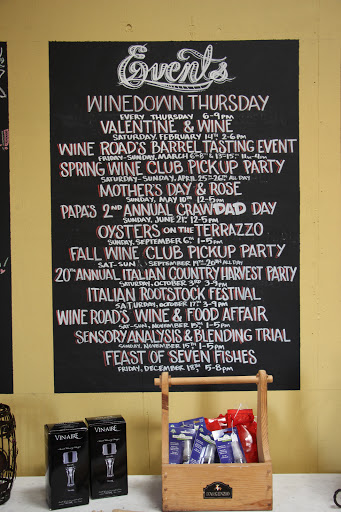 Events
WINEDOWN THURSDAY
EVERY THURSDAY 6-9PM
VALENTINE & WINE
SATURDAY, FEBRUARY 14TH 2-6PM
WINE ROAD'S BARREL TASTING EVENT
FRIDAY-SUNDAY, MARCH 6-8 & 13-15TH 11AM-4PM
SPRING WINE CLUB PICKUP PARTY
SATURDAY-SUNDAY, APRIL 25TH-26TH ALL DAY
MOTHER'S DAY & ROSE
SUNDAY, MAY 10TH 12-5PM
PAPA'S 2ND ANNUAL CRAWDAD DAY
SUNDAY, JUNE 21ST 12-5PM
OYSTERS ON THE TERRAZZO
SUNDAY, SEPTEMBER 6TH 1-5PM
FALL WINE CLUB PICKUP PARTY
SAT-SUN, SEPTEMBER ALL DAY
20TH ANNUAL ITALIAN COUNTRY HARVEST PARTY
SATURDAY, OCTOBER 3RD 3-9PM
ITALIAN ROOTSTOCK FESTIVAL
SATURDAY, OCTOBER 17TH 3-9PM
WINE ROAD'S WINE & FOOD AFFAIR
SAT-SUN, NOVEMBER 15TH 1-5PM
SENSORY ANALYSIS & BLENDING TRIAL
SUNDAY, NOVEMBER 15TH 1-5PM
FEAST OF SEVEN FISHES
FRIDAY, DECEMBER 18TH 5-8PM
VINAIR
VINAIR